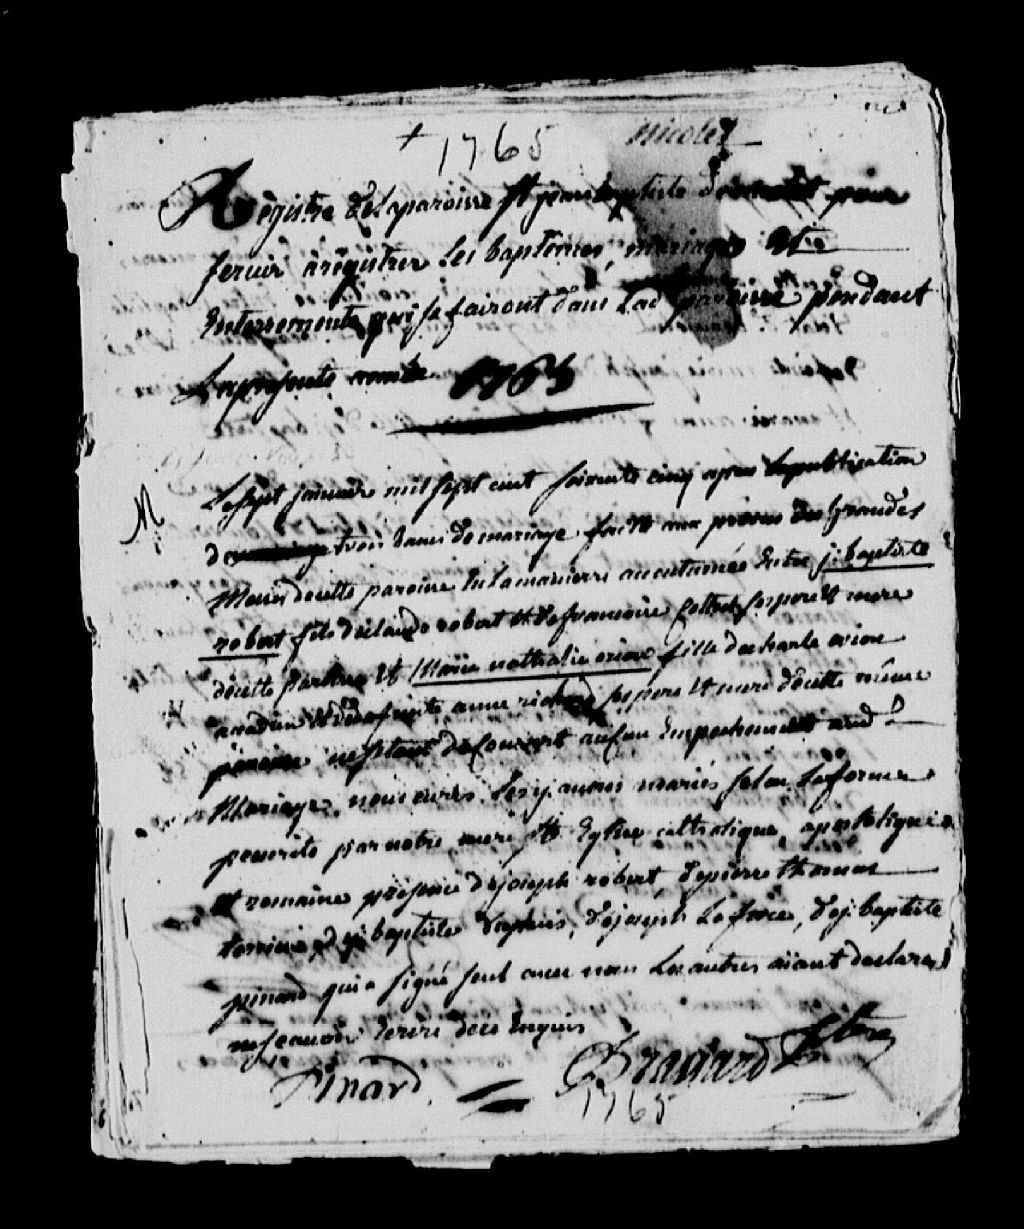 + 1765 Nicolet
Registre de la paroisse st jean baptiste de nicolet pour
servir a régistrer Les baptêmes, mariages Et
Enterrements qui se fairont dans Lad paroisse pendant
La presente année 1765
M
Le sept janvier mil sept cent soixante cinq apres la publication
de trois bans de mariage faitte aux prosnes des Grandes
Messes decette paroisse En la manierre accoutumée Entre j: baptiste
robert fils de claude robert Et de francoise ses pere Et mere
decette paroisse Et Marie nathalie orion fille de charle orion
acadien Et de defunte anne richard ses pere Et mere d'ecette même
paroisse ne s'etant découvert aucun Empechement aud
Mariage, nous curés Les y avons mariés selon La forme
prescrite par notre mere ste Eglise catholique, apostolique
Et romaine présence de joseph robert, de pierre thomas
de j: baptiste, de joseph La force, de j: baptiste
pinard qui a signé seul avec nous Les autres aiant declarer
ne scavoir Ecrire dece Enquis
Pinard. Brassard ptre
1765